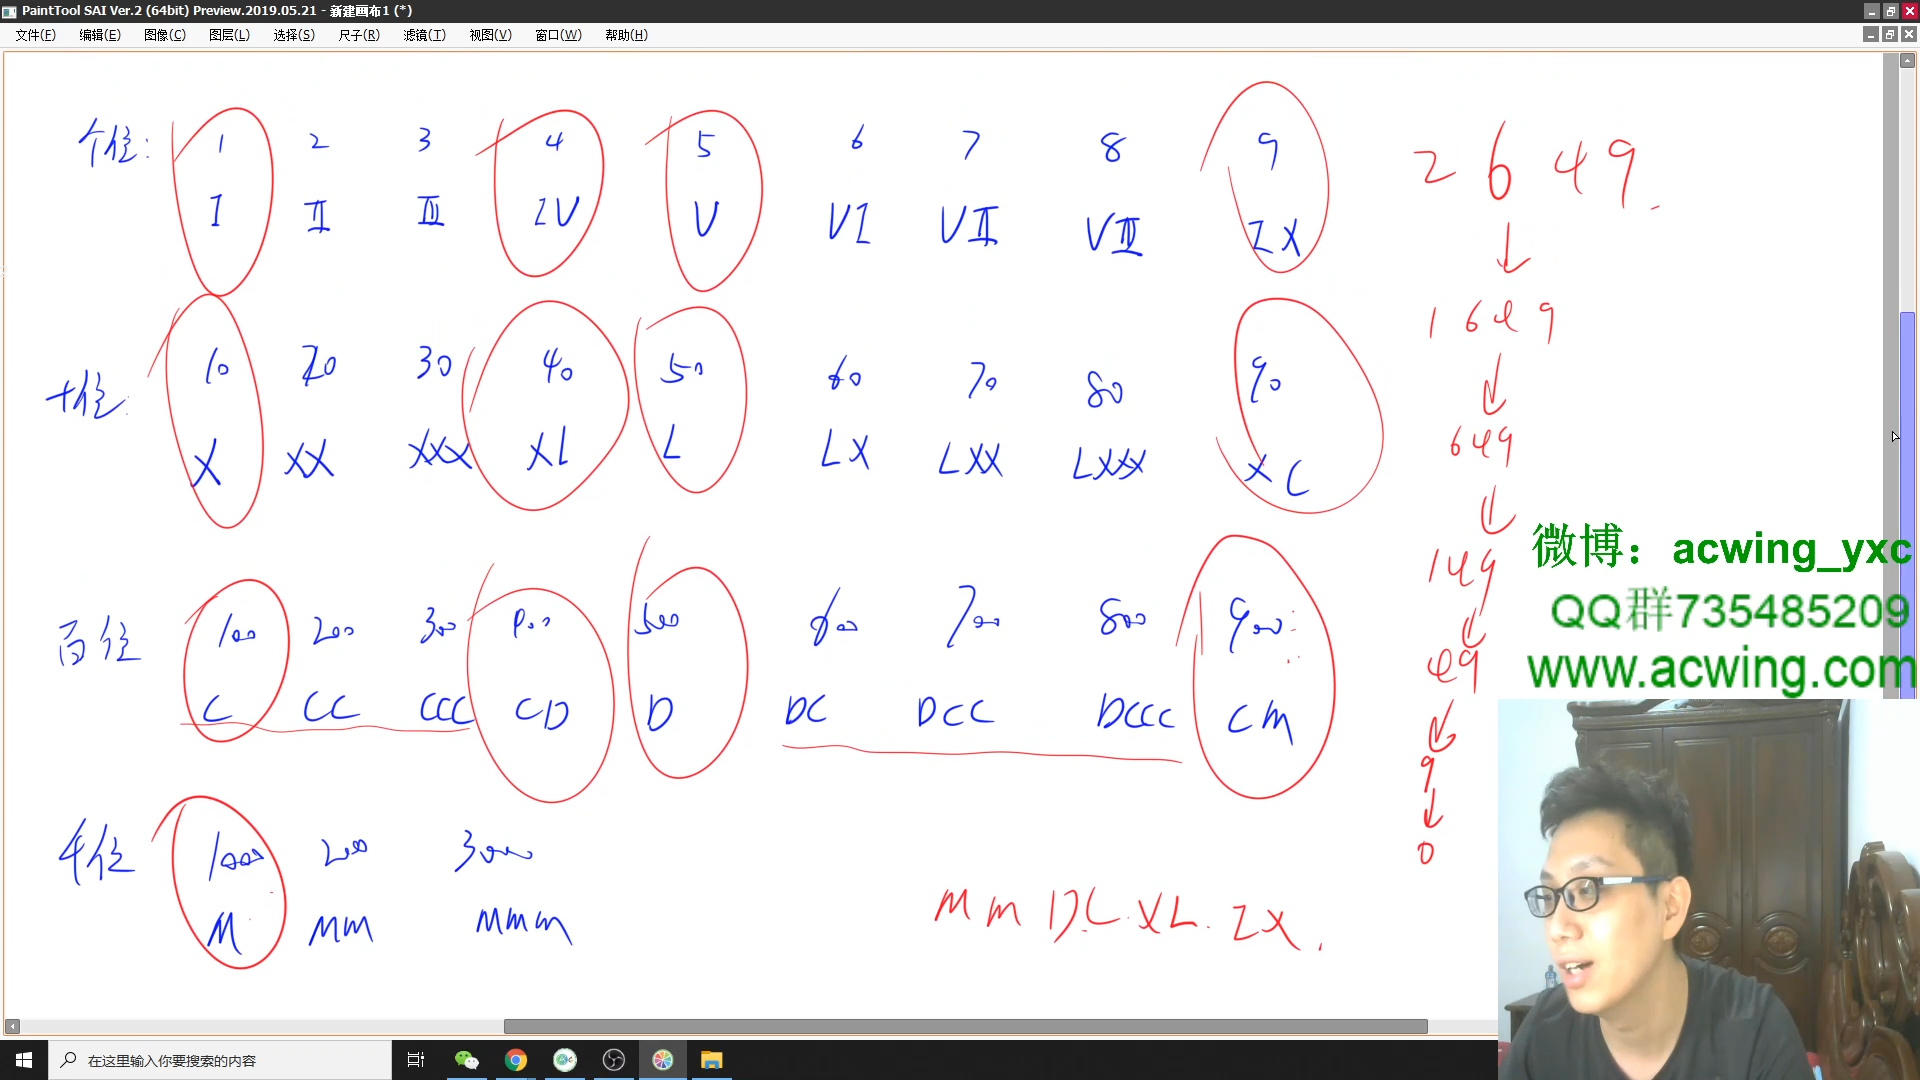 PaintTool SAI Ver.2 (64bit) Preview.2019.05.21 - 新建画布1 (*)
文件(F) 编辑(E) 图像(C) 图层(L) 选择(S) 尺子(R) 滤镜(T) 视图(V) 窗口(W) 帮助(H)
个位: 1 2 3 4 5 6 7 8 9
I II III IV V VI VII VIII IX
十位: 10 20 30 40 50 60 70 80 90
X XX XXX XL L LX LXX LXXX XC
百位 100 200 300 400 500 600 700 800 900
C CC CCC CD D DC DCC DCCC CM
千位 1000 200 3000
M MM MMM
2649.
1649
649
149
49
9
0
MMDCXLIX.
微博：acwing_yxc
QQ群735485209
www.acwing.com
在这里输入你要搜索的内容